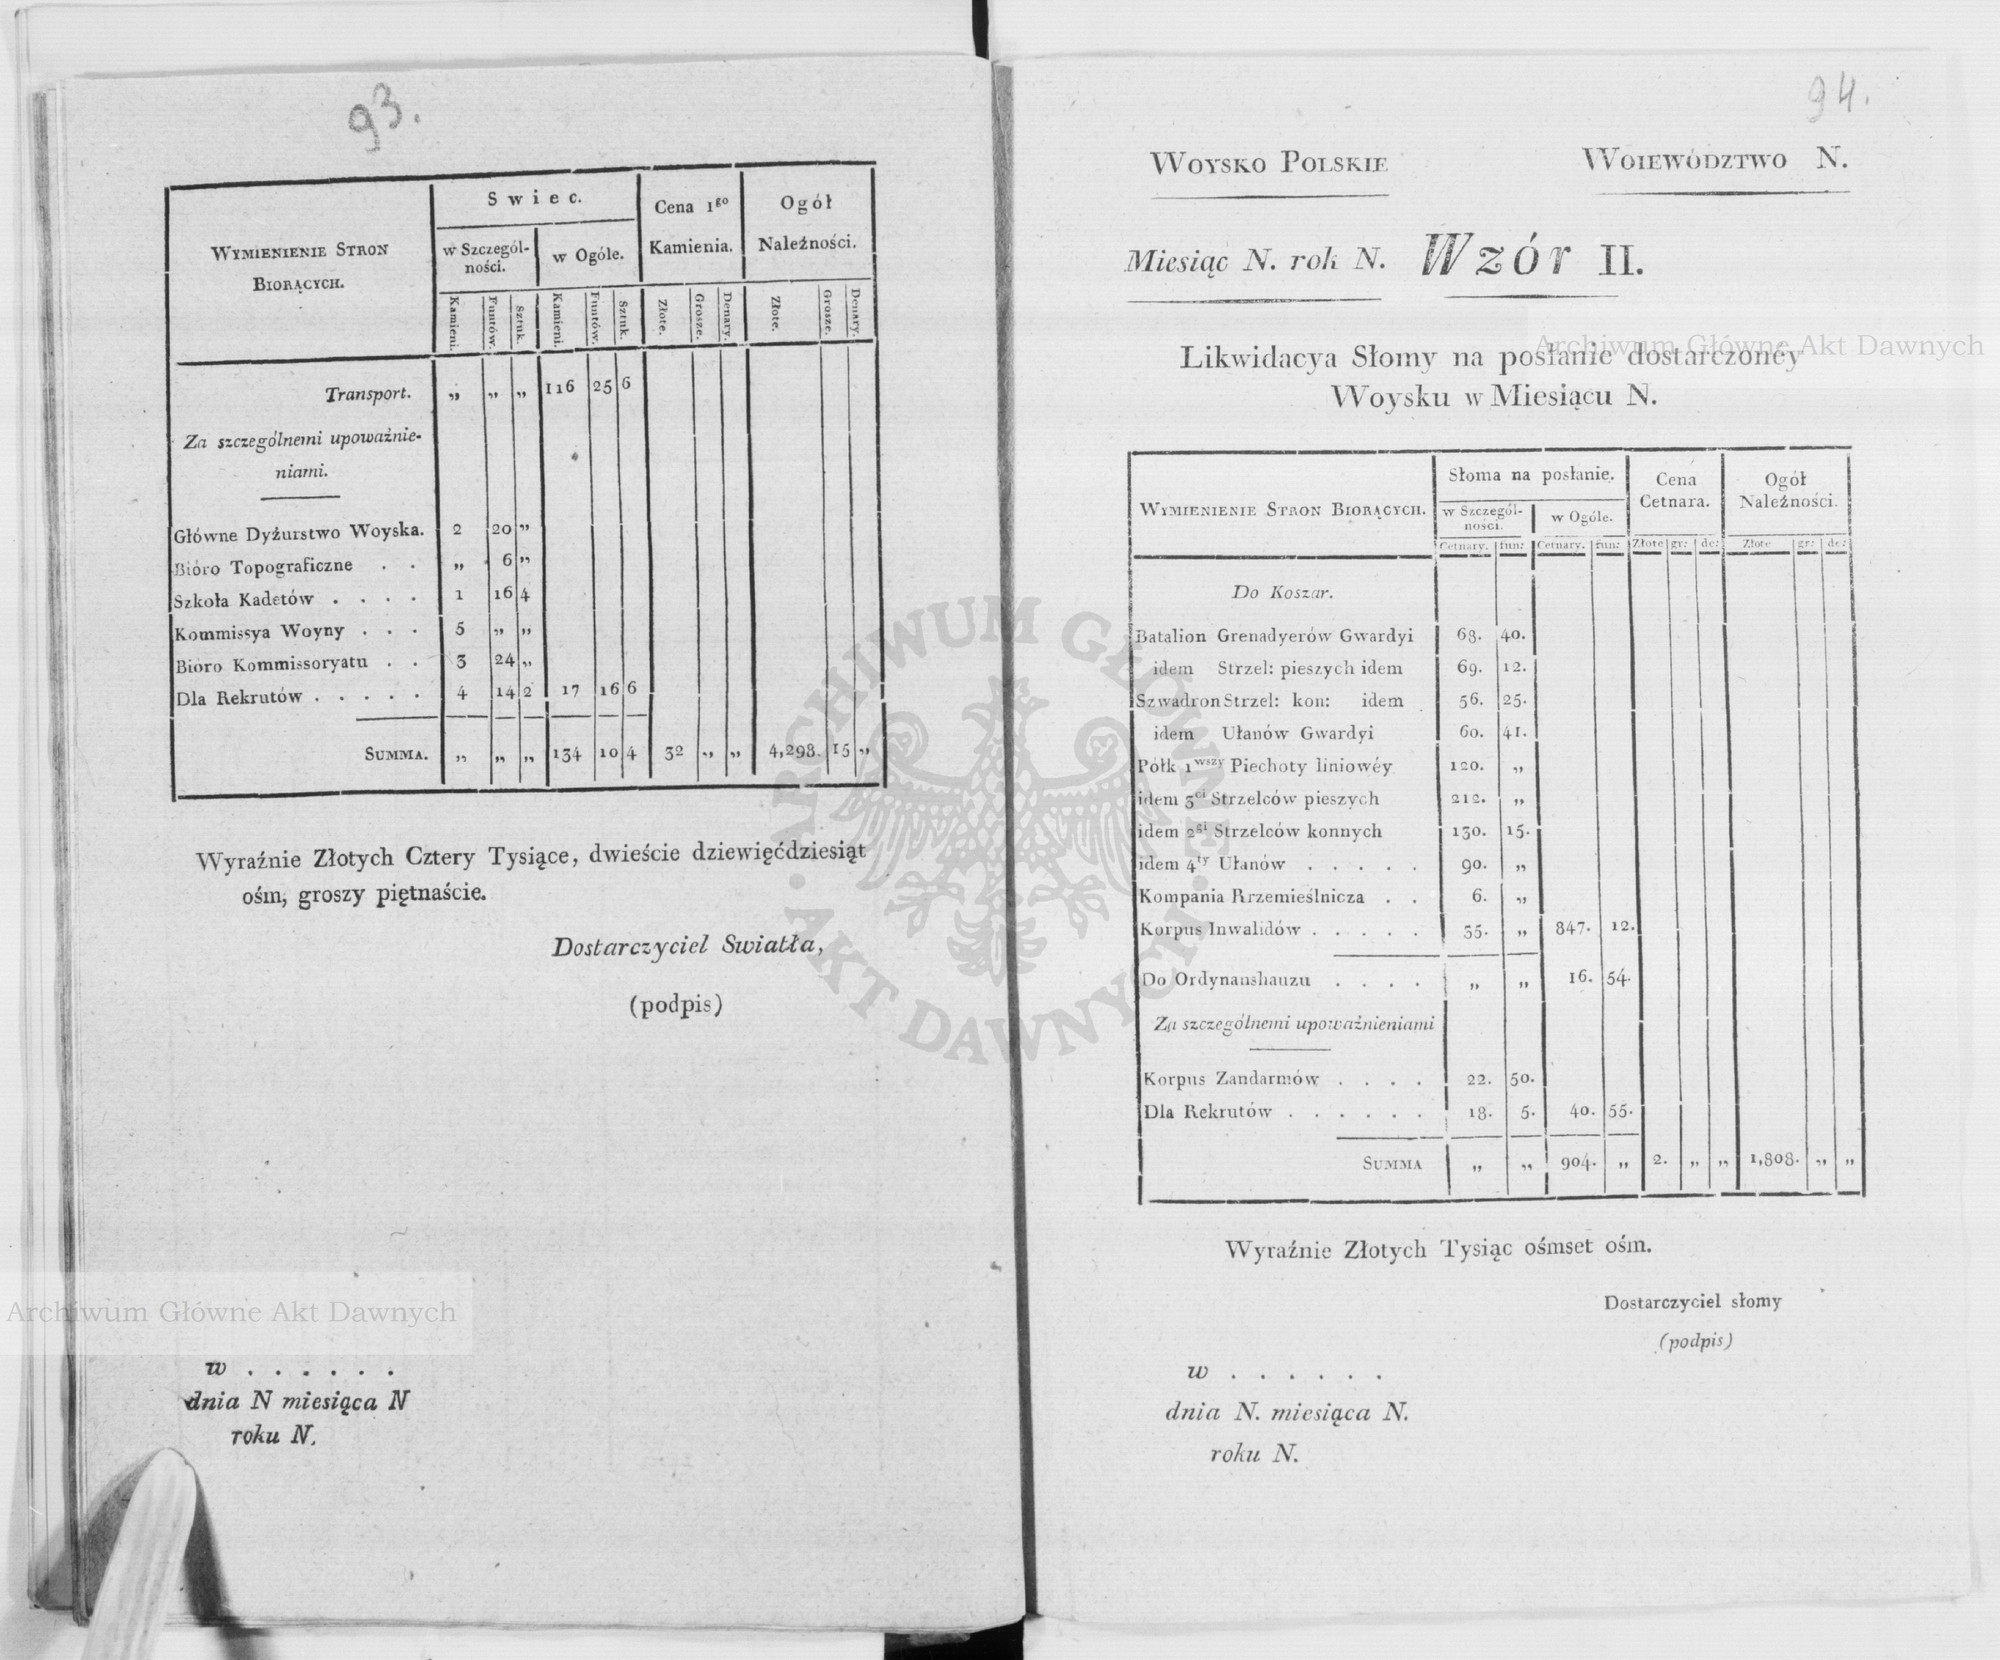 93.
WYMIENIENIE STRON
BIORĄCYCH.
Swiec.
w Szczegól-
ności.
w Ogóle.
Cena 1go
Kamienia.
Ogół
Należności.
Kamieni. Funtów. Sztuk. Kamieni. Funtów. Sztuk. Złote. Grosze. Denary. Złote. Grosze. Denary.
Transport. „ „ „ 116 25 6
Za szczególnemi upoważnie-
niami.
Główne Dyżurstwo Woyska. 2 20 „
Bióro Topograficzne . . „ 6 „
Szkoła Kadetów . . . . 1 16 4
Kommissya Woyny . . . 5 „ „
Bióro Kommissoryatu . . 3 24 „
Dla Rekrutów . . . . . 4 14 2 17 16 6
SUMMA. „ „ „ 134 10 4 32 „ „ 4,298. 15 „
Wyraźnie Złotych Cztery Tysiące, dwieście dziewięćdziesiąt
ośm, groszy piętnaście.
Dostarczyciel Swiatła,
(podpis)
w . . . . . .
dnia N miesiąca N
roku N.
Archiwum Główne Akt Dawnych
94.
WOYSKO POLSKIE
WOIEWÓDZTWO N.
Miesiąc N. rok N.
Wzór II.
Likwidacya Słomy na posłanie dostarczonéy
Woysku w Miesiącu N.
Archiwum Główne Akt Dawnych
WYMIENIENIE STRON BIORĄCYCH.
Słoma na posłanie.
w Szczegól-
ności.
w Ogóle.
Cena
Cetnara.
Ogół
Należności.
Cetnary. fun: Cetnary. fun: Złote gr: de: Złote gr: de:
Do Koszar.
Batalion Grenadyerów Gwardyi 68. 40.
idem Strzel: pieszych idem 69. 12.
Szwadron Strzel: kon: idem 56. 25.
idem Ułanów Gwardyi 60. 41.
Półk 1wszy Piechoty liniowéy 120. „
idem 3ci Strzelców pieszych 212. „
idem 2gi Strzelców konnych 130. 15.
idem 4ty Ułanów . . . . . 90. „
Kompania Rrzemieślnicza . . 6. „
Korpus Inwalidów . . . . . 35. „ 847. 12.
Do Ordynanshauzu . . . . „ „ 16. 54.
Za szczególnemi upoważnieniami
Korpus Zandarmów . . . . 22. 50.
Dla Rekrutów . . . . . . 18. 5. 40. 55.
SUMMA „ „ 904. „ 2. „ „ 1,808. „ „
Wyraźnie Złotych Tysiąc ośmset ośm.
Dostarczyciel słomy
(podpis)
w . . . . . .
dnia N. miesiąca N.
roku N.
ARCHIWUM GŁÓWNE
AKT DAWNYCH